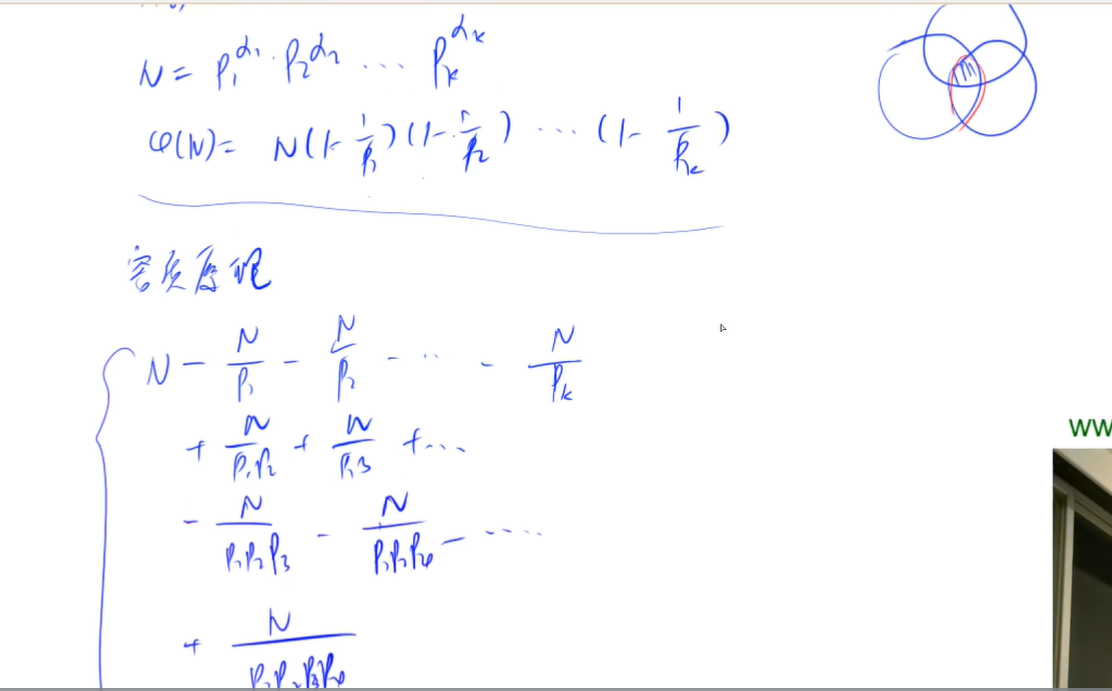 N = P₁^α₁ · P₂^α₂ ... Pₖ^αₖ
φ(N) = N(1 - 1/P₁)(1 - 1/P₂) ... (1 - 1/Pₖ)
容斥原理
N - N/P₁ - N/P₂ - ... - N/Pₖ
+ N/P₁P₂ + N/P₁P₃ + ...
- N/P₁P₂P₃ - N/P₁P₂P₄ - ....
+ N/P₁P₂P₃P₄
WW